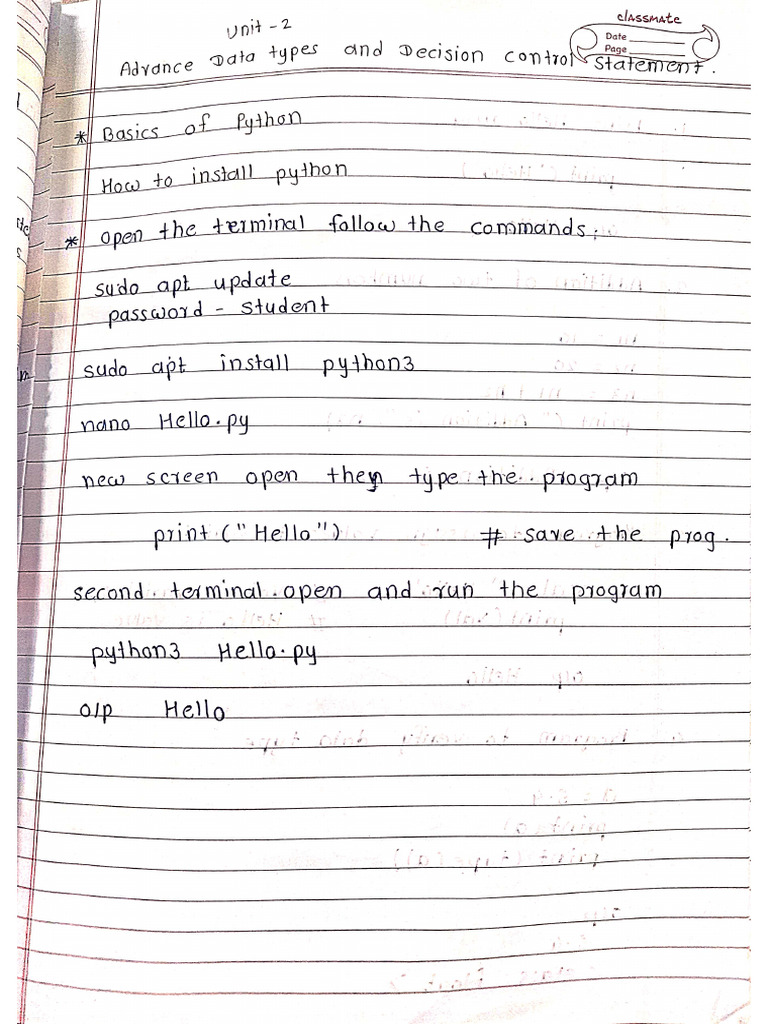 Unit - 2
classmate
Date
Page
Advance Data types and Decision control statement.
* Basics of Python
How to install python
* open the terminal follow the commands:
sudo apt update
password - student
sudo apt install python3
nano Hello.py
new screen open then type the program
print ("Hello") # save the prog.
second terminal open and run the program
python3 Hello.py
o/p Hello